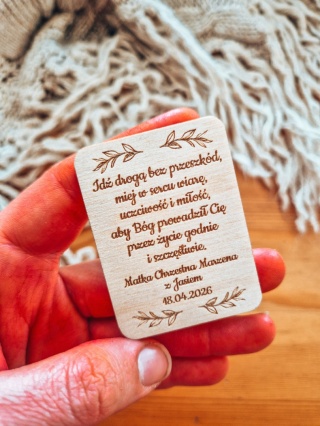 Idź drogą bez przeszkód,
miej w sercu wiarę,
uczciwość i miłość,
aby Bóg prowadził Cię
przez życie godnie
i szczęśliwie.
Matka Chrzestna Marzena
z Jasiem
18.04.2026